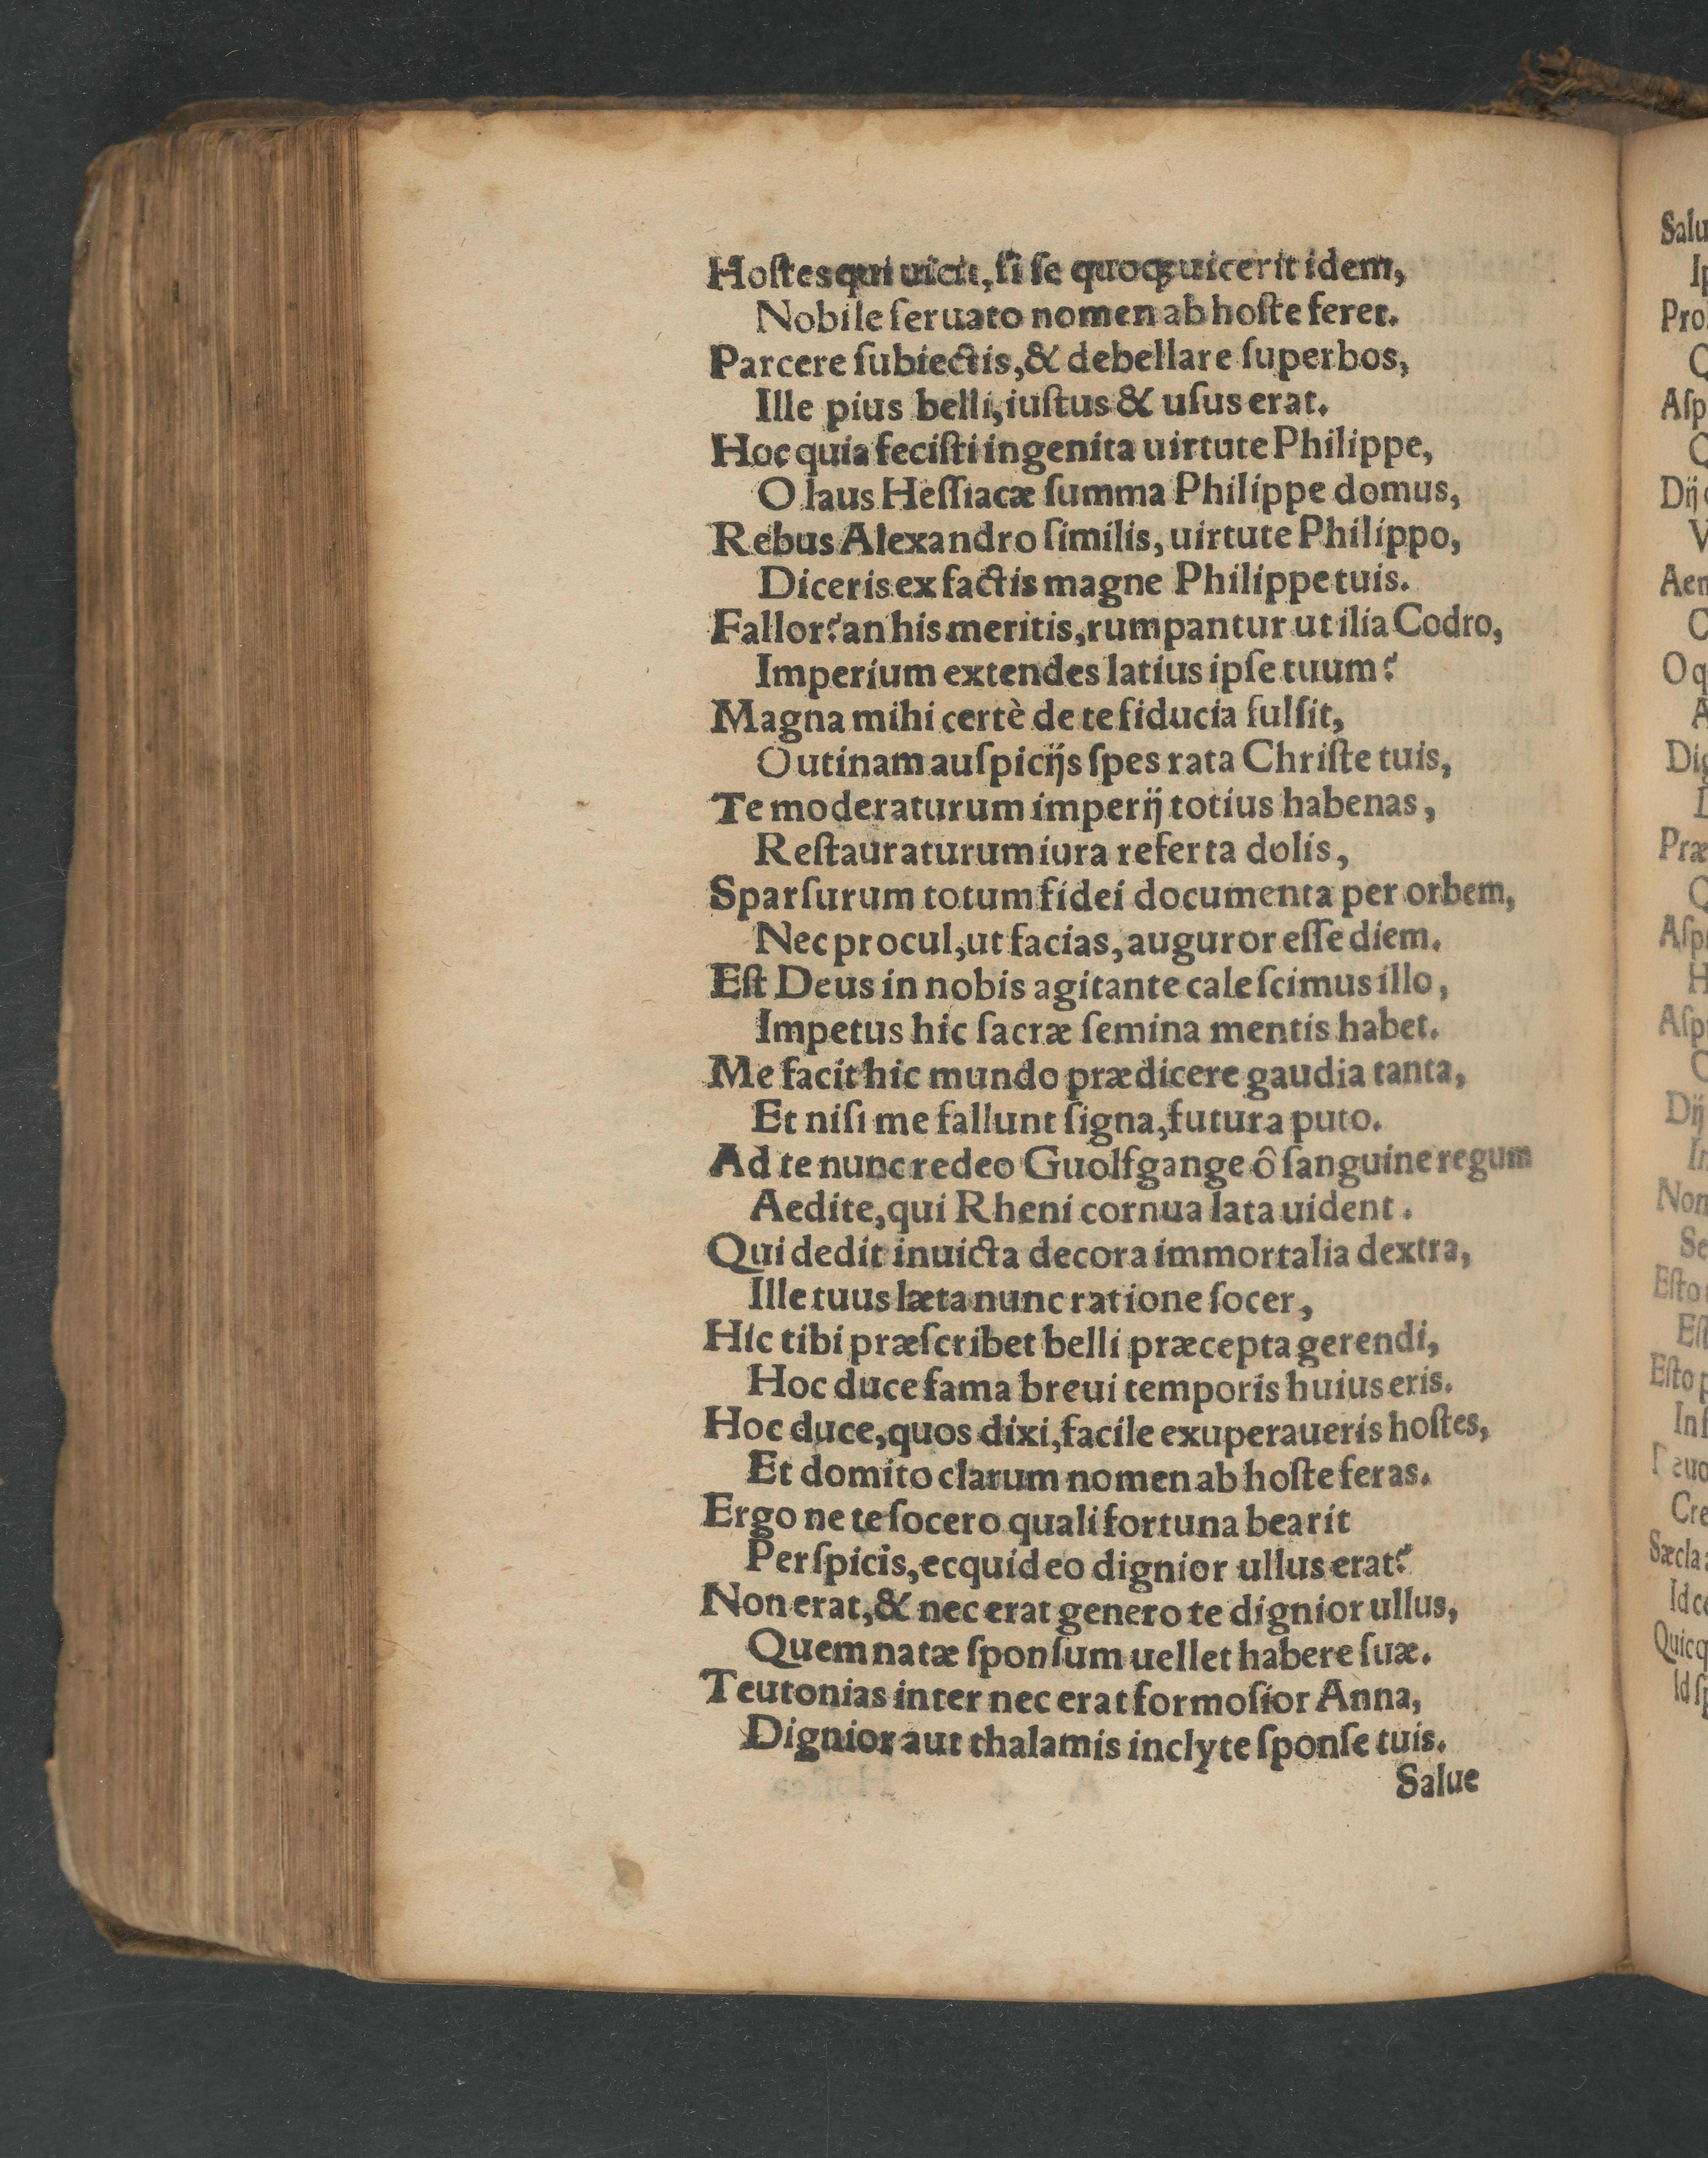 Hoſtes qui uicit, ſi ſe quoqꝫ uicerit idem,
Nobile ſeruato nomen ab hoſte feret.
Parcere ſubiectis, & debellare ſuperbos,
Ille pius belli, iuſtus & uſus erat.
Hoc quia feciſti ingenita uirtute Philippe,
O laus Heſſiacæ ſumma Philippe domus,
Rebus Alexandro ſimilis, uirtute Philippo,
Diceris ex factis magne Philippe tuis.
Fallor? an his meritis, rumpantur ut ilia Codro,
Imperium extendes latius ipſe tuum?
Magna mihi certè de te fiducia fulſit,
O utinam auſpicijs ſpes rata Chriſte tuis,
Te moderaturum imperij totius habenas,
Reſtauraturum iura referta dolis,
Sparſurum totum fidei documenta per orbem,
Nec procul, ut facias, auguror eſſe diem.
Eſt Deus in nobis agitante caleſcimus illo,
Impetus hic ſacræ ſemina mentis habet.
Me facit hic mundo prædicere gaudia tanta,
Et niſi me fallunt ſigna, futura puto.
Ad te nunc redeo Guolfgange ô ſanguine regum
Aedite, qui Rheni cornua lata uident.
Qui dedit inuicta decora immortalia dextra,
Ille tuus læta nunc ratione ſocer,
Hic tibi præſcribet belli præcepta gerendi,
Hoc duce fama breui temporis huius eris.
Hoc duce, quos dixi, facile exuperaueris hoſtes,
Et domito clarum nomen ab hoſte feras.
Ergo ne te ſocero quali fortuna bearit
Perſpicis, ecquid eo dignior ullus erat?
Non erat, & nec erat genero te dignior ullus,
Quem natæ ſponſum uellet habere ſuæ.
Teutonias inter nec erat formoſior Anna,
Dignior aut thalamis inclyte ſponſe tuis.
Salue